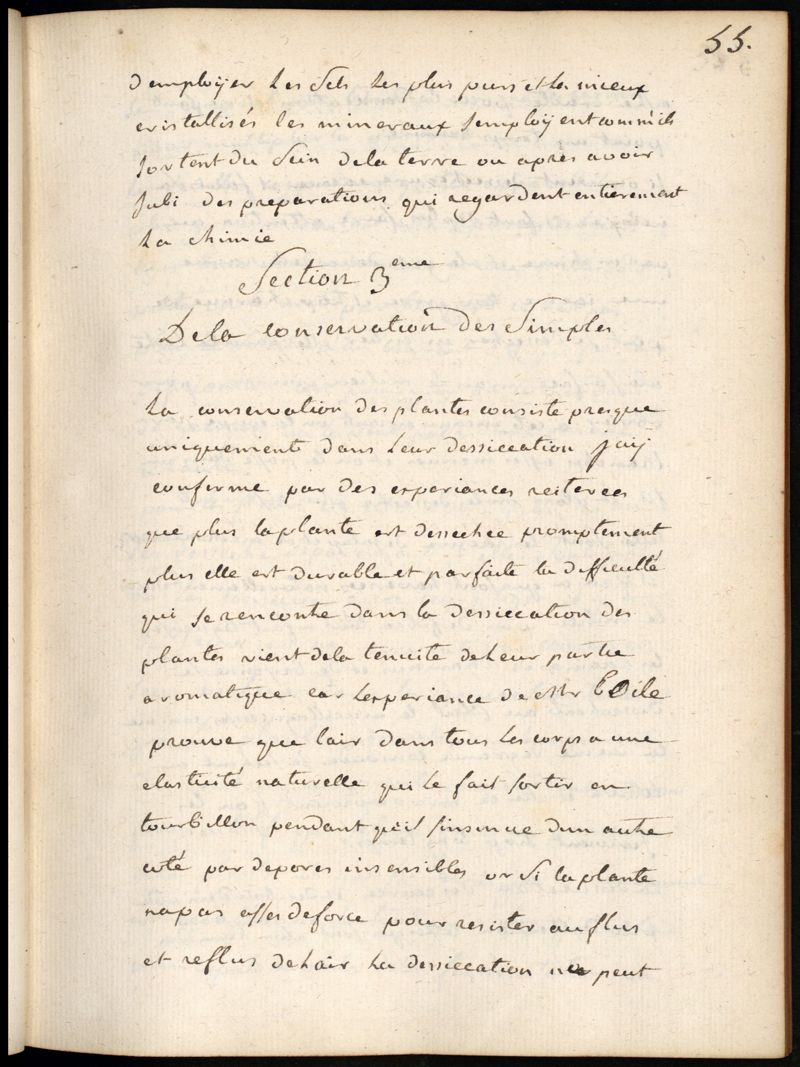 55.
d'emploÿer les Sels les plus purs et la mieux
cristallisés les mineraux semploÿent comme ils
sortent du Sein de la terre ou apres avoir
subi des preparations qui regardent entierement
la chimie
Section 3eme
De la conservation des Simples
la conservation des plantes consiste presque
uniquement dans leur dessiccation jaÿ
confirme par des experiances reiterees
que plus la plante est dessechee promptement
plus elle est durable et parfaite la difficulté
qui se rencontre dans la dessiccation des
plantes vient de la tenuité de leur partie
aromatique car lexperiance de Mr
prouve que lair dans tous les corps a une
elasticité naturelle qui le fait sortir en
tourbillon pendant quil sinsinue dun autre
coté par de pores insensibles or Si la plante
na pas asses de force pour resister au flus
et reflus de lair la dessiccation ne peut